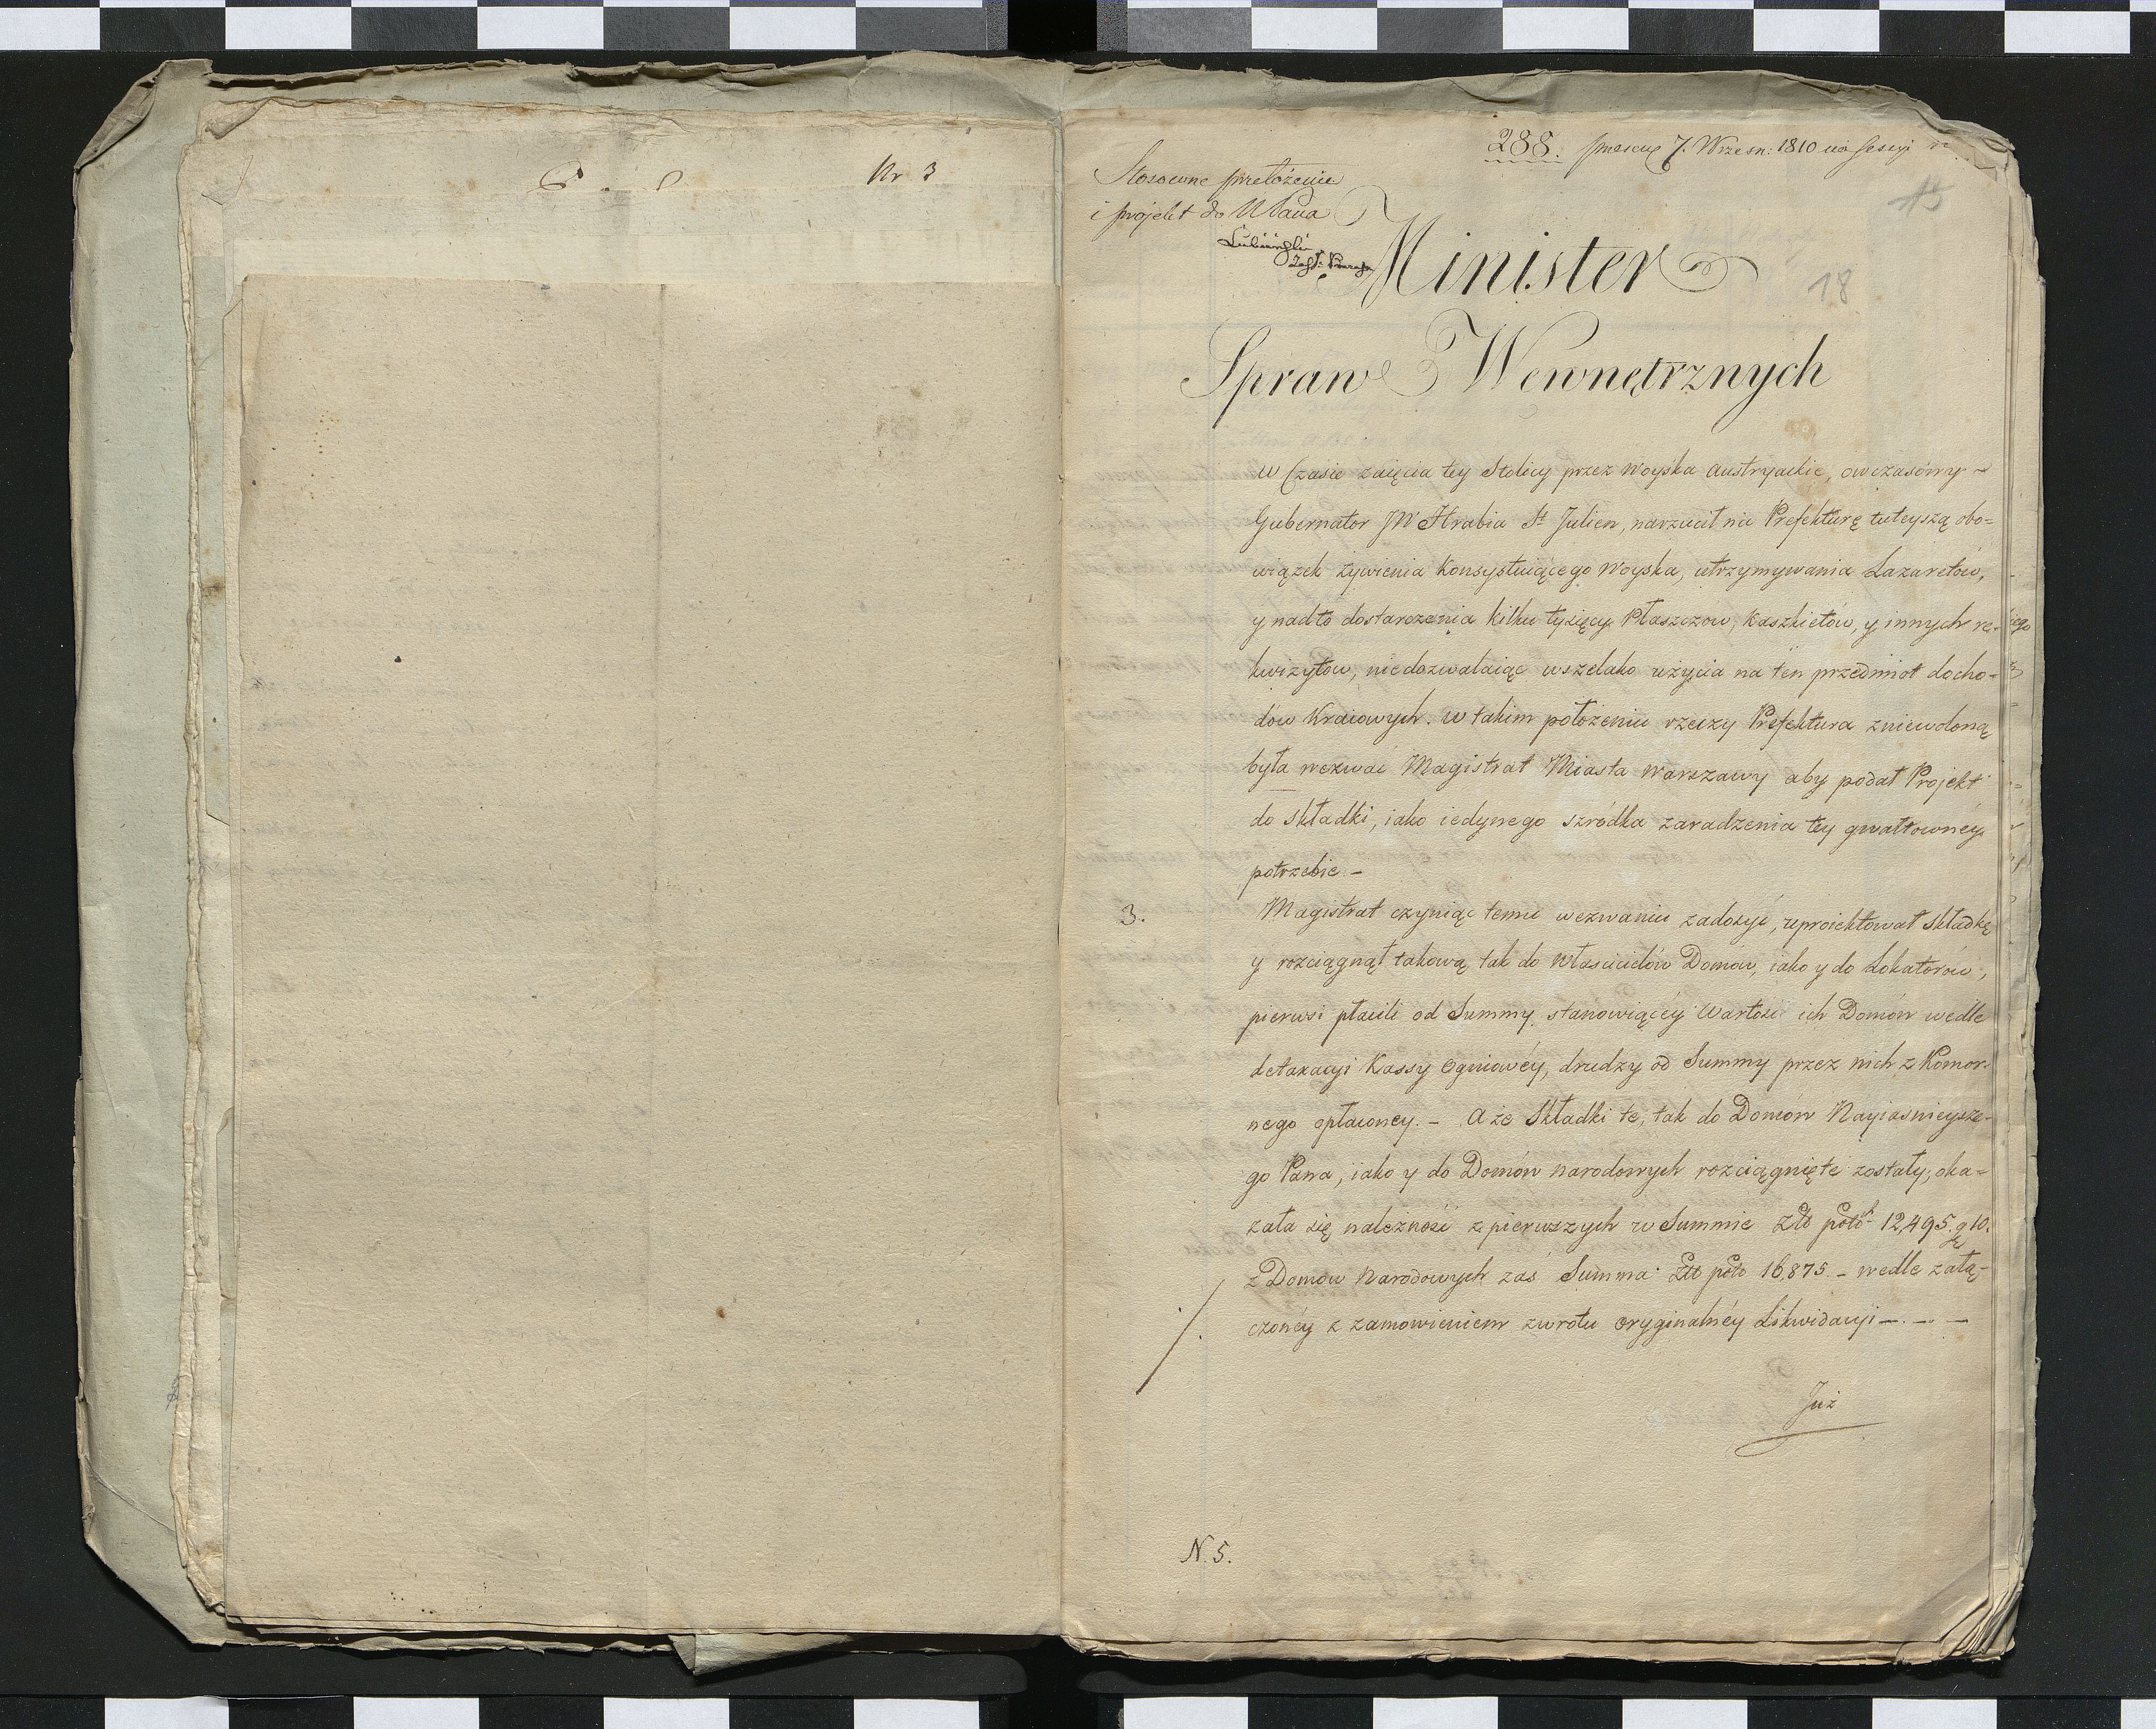 Nr 3
288. 7. Wrzesn: 1810 na Sessyi
15
Stosowne przełożenie
i projekt do
Minister
18
Spraw Wewnętrznych
w Czasie zaięcia tey Stolicy przez Woyska Austryackie, owczasowy
Gubernator JW Hrabia St Julien, narzucił na Prefekturę tuteyszą obo=
wiązek żywienia Konsystuiącego Woyska, utrzymywania Lazaretów,
y nadto dostarczenia kilku tysięcy Płaszczow, Kaszkietów, y innych re-
kwizytow, niedozwalaiąc wszelako użycia na ten przedmiot docho-
dów Kraiowych. w takim położeniu rzeczy Prefektura zniewoloną
była wezwać Magistrat Miasta Warszawy aby podał Projekt
do składki, iako iedynego szródka zaradzenia tey gwałtownéy
potrzebie. -
3. Magistrat czyniąc temu wezwaniu zadosyć, uproiektował składkę
y rozciągnął takową tak do właścicielów Domow, iako y do Lokatorów,
pierwsi płacili od Summy stanowiącéy Wartość ich Domów wedle
detaxacyi Kassy Ogniowéy, drudzy od Summy przez nich z Komor-
nego opłaconey. - A że Składki te, tak do Domów Nayiasnieysze-
go Pana, iako y do Domów narodowych rozciągnięte zostały, oka-
zała się należność z pierwszych w Summie Złł pols 12,495. g 10.
z Domow Narodowych zaś Summa Złł pols 16,875 - wedle załą-
czonéy z zamowieniem zwrotu oryginalnéy Likwidacyi -. - -
Już
N. 5.